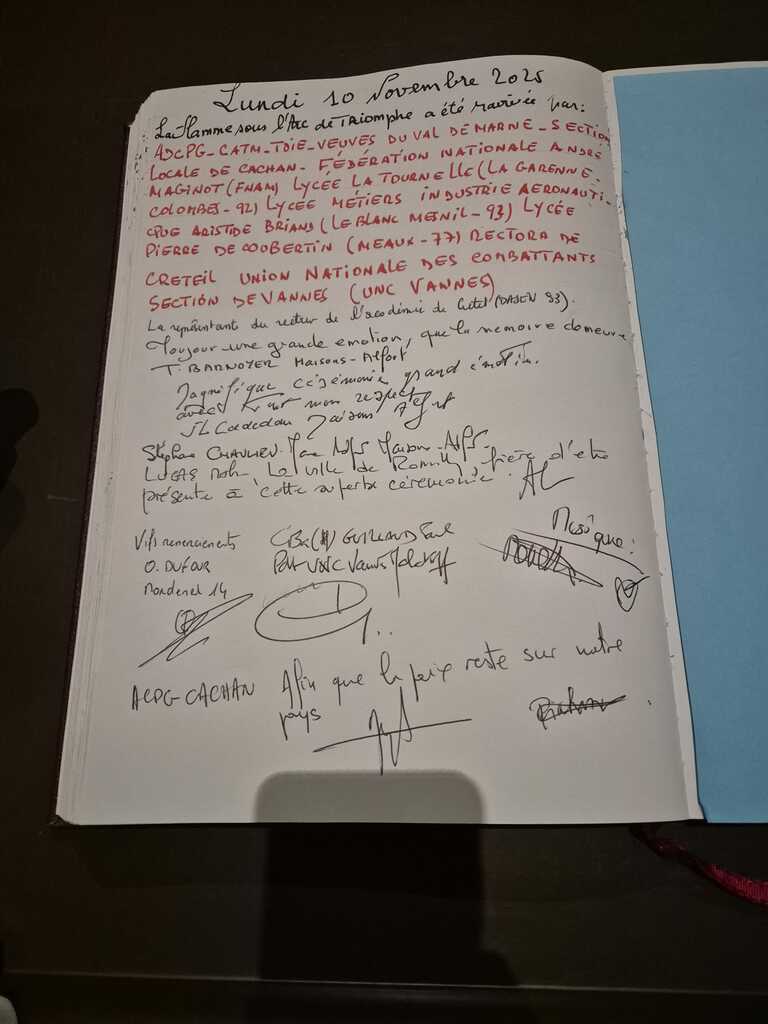 Lundi 10 Novembre 2025
La flamme sous l'Arc de Triomphe a été ravivée par:
ADCPG_CATM_TOIE_VEUVES DU VAL DE MARNE_SECTION
LOCALE DE CACHAN_ FÉDÉRATION NATIONALE ANDRÉ
MAGINOT (FNAM) LYCÉE LA TOURNELLE (LA GARENNE_
COLOMBES_92) LYCÉE MÉTIERS INDUSTRIE AERONAUTI-
QUE ARISTIDE BRIAND (LE BLANC MESNIL_93) LYCÉE
PIERRE DE COUBERTIN (MEAUX_77) RECTORA DE
CRETEIL UNION NATIONALE DES COMBATTANTS
SECTION DE VANNES (UNC VANNES)
La représentant du recteur de l'académie de Créteil (DASEN 93).
Toujour une grande emotion, que la memoire demeure
T. BARNOYER Maisons-Alfort
Magnifique cérémonie grand émotion.
avec tout mon respect
Stéphane Maisons-Alfort
LUCAS La ville de Romilly fière d'etre
présente à cette superbe céremonie.
Vifs remerciements
O. DUFOUR
Musique:
ACPG-CACHAN Afin que la paix reste sur notre
pays